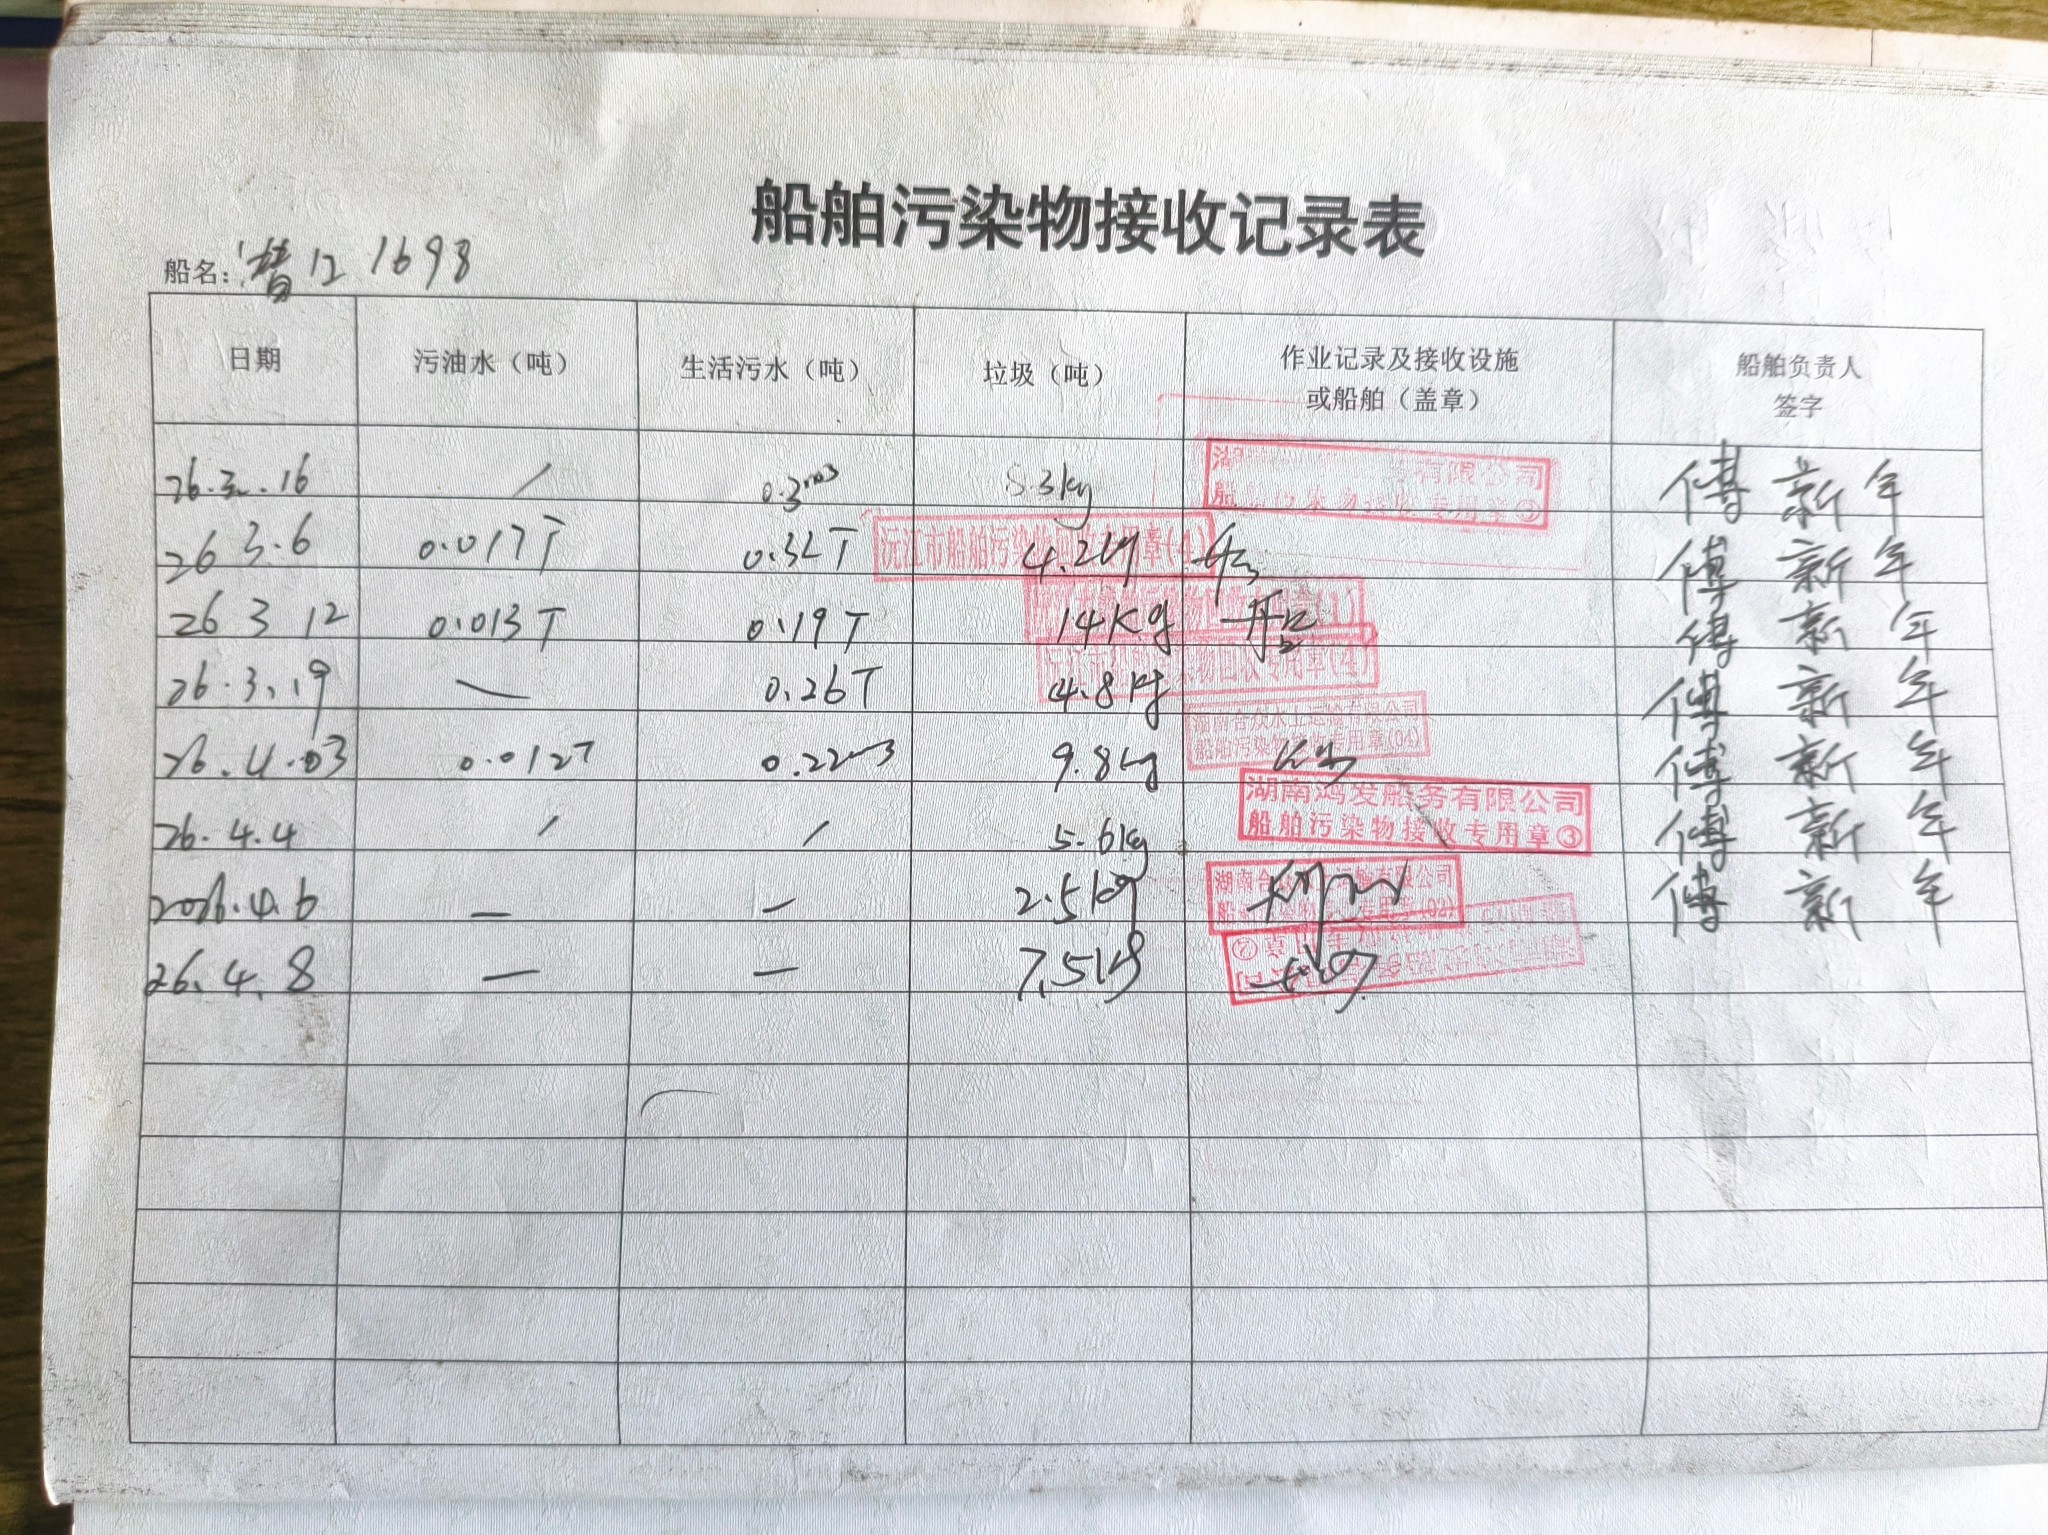 船舶污染物接收记录表
船名: 1698
日期 污油水（吨） 生活污水（吨） 垃圾（吨） 作业记录及接收设施或船舶（盖章） 船舶负责人签字
26.2.16 / 0.3m3 5.3kg 有限公司 傅新年
26 3.6 0.017T T 沅江市船舶污染物回收专用章(4) 4.2kg 傅新年
26 3 12 0.013T 0.19T 14Kg 傅新年
26.3.19 — 0.26T 4.8kg 物回收专用章(4) 傅新年
26.4.03 0.012T 0.22m3 9.8kg 水上运输有限公司 船舶污染物接收专用章(04) 傅新年
26.4.4 / / 5.6kg 湖南鸿发船务有限公司 船舶污染物接收专用章③ 傅新年
2026.4.6 — — 2.5kg 湖南 运输有限公司 傅新年
26.4.8 — — 7.5kg